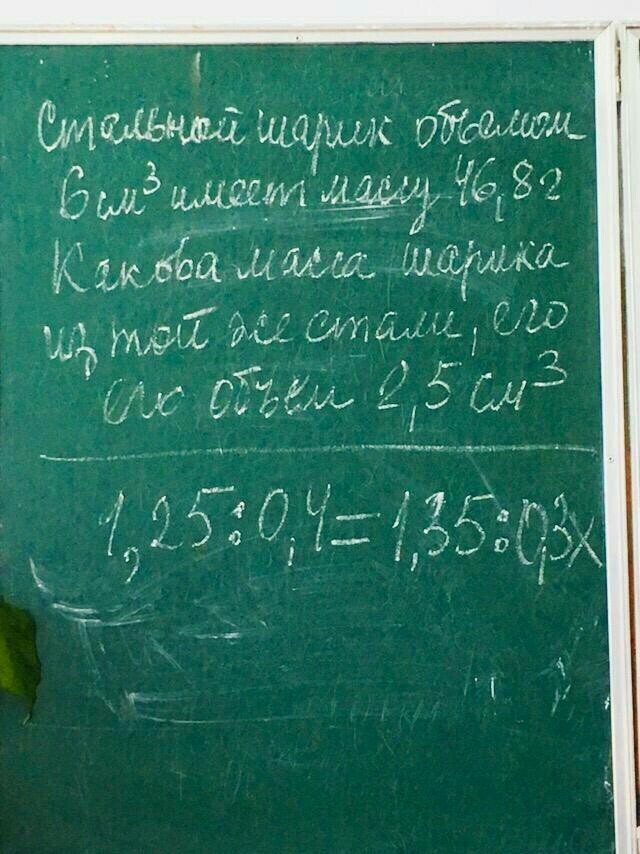 Стальной шарик объемом
6 см³ имеет массу 46,8 г
Какова масса шарика
из той же стали, его
его объем 2,5 см³
1,25:0,4=1,35:0,3x